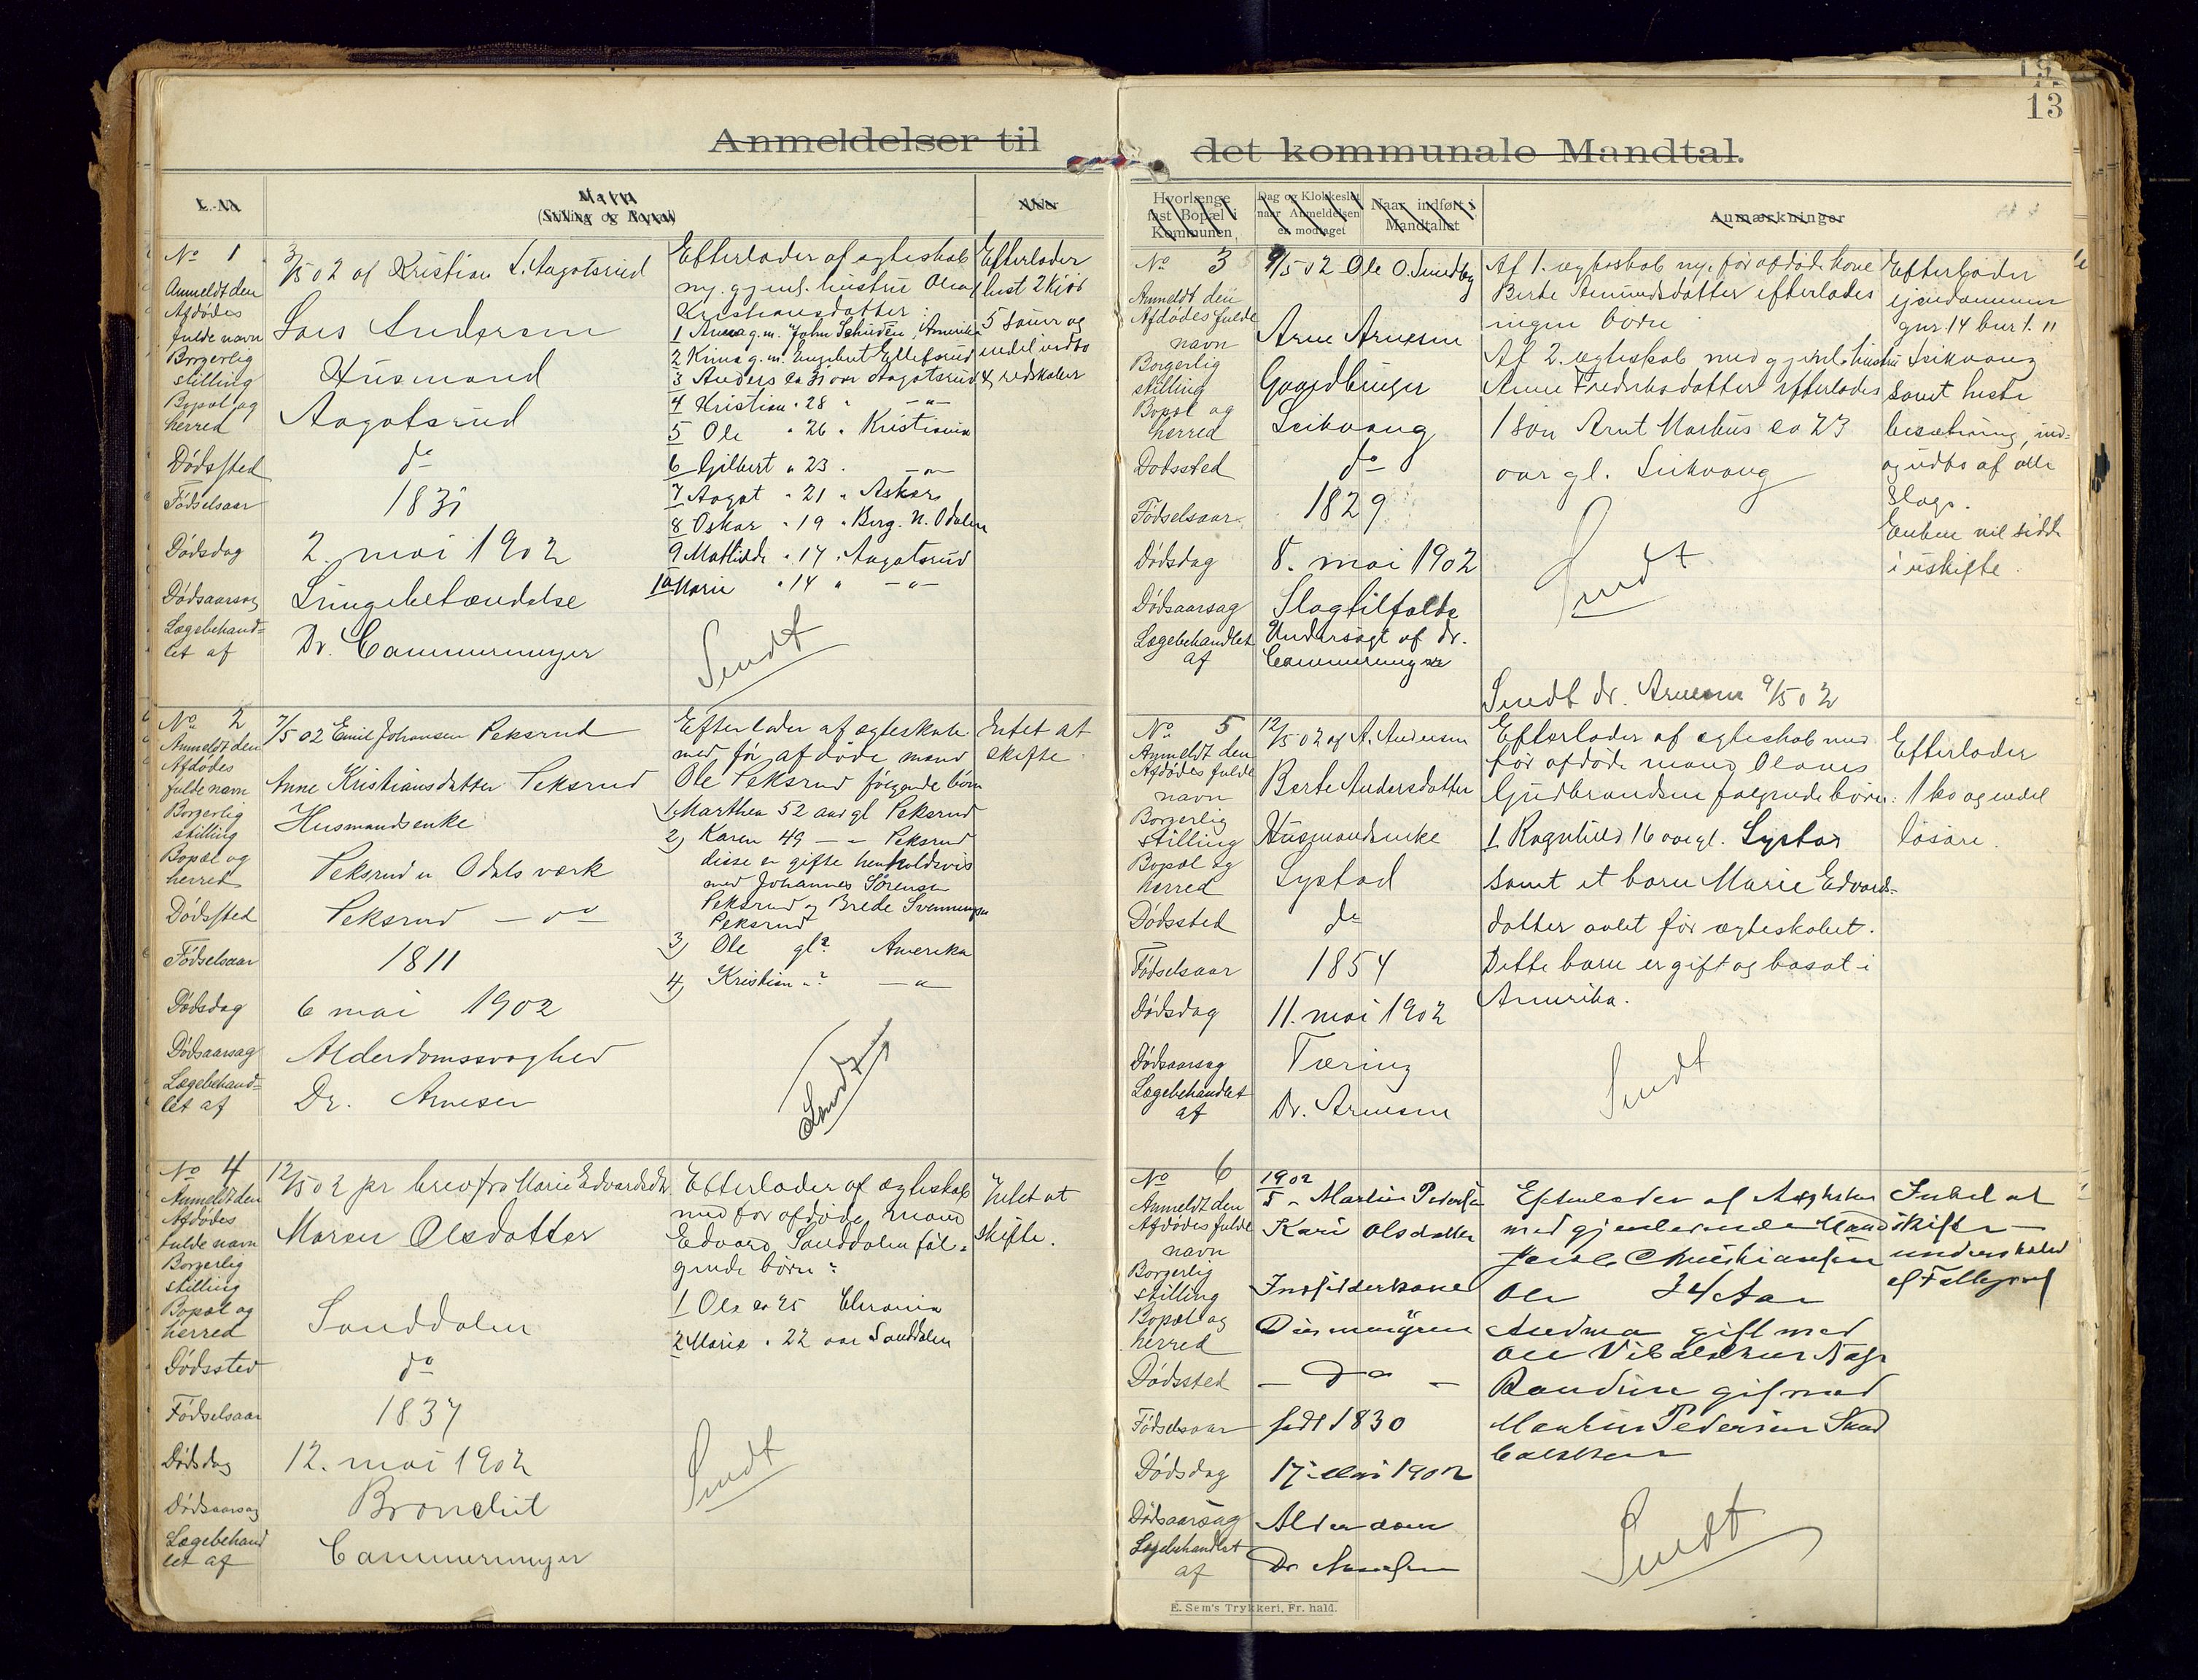 Anmeldelser til
L. No
Navn
(Stilling og Bopæl)
Alder
No 1
3/5 02 af Kristian L. Aagotsrud
Anmeldt den
Afdødes
fulde navn
Lars Andersen
Borgerlig
stilling
Husmand
Bopæl og
herred
Aagotsrud
Dødssted
do
Fødselsaar
1831
Dødsdag
2. mai 1902
Dødsaarsag
Lungebetændelse
Lægebehand=
let af
Dr. Cammermeyer
Efterlader af egteskab
m. gjenl. hustru Olea
Kristiansdatter:
1 Anna g. m. John Amerika
2 g. m. Engebret Ellefsrud
3 Anders ca 31 aar Aagotsrud
4 Kristian " 28 " — " —
5 Ole " 26 " Kristiania
6 Gilbert " 23 " — " —
7 Aagot " 21 " Asker
8 Oskar " 19 " Berg. N. Odalen
9 Mathilde " 17 " Aagotsrud
10 Marie " 14 " — " —
Sendt
Efterlader
hest 2 kjør
5 sauer og
endel indbo
& redskaber
No 2
7/5 02 Emil Johansen Peksrud
Anmeldt den
Afdødes
fulde navn
Anne Kristiansdatter Peksrud
Borgerlig
stilling
Husmandsenke
Bopæl og
herred
Peksrud u Odals værk
Dødssted
Peksrud — do
Fødselsaar
1811
Dødsdag
6 mai 1902
Dødsaarsag
Alderdomssvaghed
Lægebehand=
let af
Dr. Arnesen
Efterlader af egteskab
med før afdøde mand
Ole Peksrud følgende børn
1, Marthea 52 aar gl Peksrud
2) Karen 49 — " Peksrud
disse er gifte henholdsvis
med Johannes Sørensen
Peksrud og Brede Svenningsen
Peksrud
3) Ole gl? Amerika
4) Kristian " ? — " —
Sendt
Intet at
skifte.
No 4
12/5 02 pr brev fra Marie Edvardsdtr.
Anmeldt den
Afdødes
fulde navn
Maren Olsdatter
Borgerlig
stilling
Bopæl og
herred
Sanddalen
Dødssted
do
Fødselsaar
1837
Dødsdag
12. mai 1902
Dødsaarsag
Bronchit
Lægebehand
let af
Cammermeyer
Efterlader af egteskab
med før afdøde mand
Edvard Sanddalen føl=
gende børn:
1 Ole ca 25 Chrania
2 Marie " 22 aar Sanddalen
Sendt
Intet at
skifte.
13
det kommunale Mandtal.
Hvorlænge
fast Bopæl i
Kommunen
Dag og Klokkeslet
naar Anmeldelsen
er modtaget
Naar indført i
Mandtallet
Anmærkninger
No 3
9/5 02 Ole O. Sundby
Anmeldt den
Afdødes fulde
navn
Arne Arnesen
Borgerlig
stilling
Gaardbruger
Bopæl og
herred
Leikvang
Dødssted
do
Fødselsaar
1829
Dødsdag
8. mai 1902
Dødsaarsag
Slagtilfælde
Lægebehandlet
af
Undersøgt af dr.
Cammermeyer
Af 1. egteskab m. før afdøde kone
Berte Amundsdatter efterlades
ingen børn
Af 2. egteskab med gjenl. hustru
Anne Fredriksdatter efterlades
1 søn Arnt Markus ca 23
aar gl. Leikvang
Sendt
Sendt dr. Arnesen 9/5 02
Efterlader
ejendommen
gnr. 14 bnr 1. 11
Leikvang
samt heste
besætning, ind=
og udbo af alle
slags.
Enken vil sidde
i uskifte.
No 5
12/5 02 af A. Andersen
Anmeldt den
Afdødes fulde
navn
Berte Andersdatter
Borgerlig
stilling
Husmandsenke
Bopæl og
herred
Systad
Dødssted
do
Fødselsaar
1854
Dødsdag
11. mai 1902
Dødsaarsag
Tæring
Lægebehandlet
af
Dr. Arnesen
Efterlader af egteskab med
før afdøde mand Olaves
Gudbrandsen følgende børn:
1 Ragnhild 16 aar gl. Systad
samt et barn Marie Edvards=
datter avlet før egteskabet.
Dette barn er gift og bosat i
Amerika.
Sendt
Efterlader
1 ko og endel
løsøre.
No 6
1902
/5 " Martin Pedersen
Anmeldt den
Afdødes fulde
navn
Kari Olsdatter
Borgerlig
stilling
Insidderkone
Bopæl og
herred
Dødssted
— Do —
Fødselsaar
født 1830
Dødsdag
17 Mai 1902
Dødsaarsag
Alderdom
Lægebehandlet
af
Dr Arnesen
Efterlader af Ægteskab
med gjenlevende Mand
Christiansen
Ole 34 Aar
gift med
Ole
Randine gift med
Martin Pedersen
Sendt
Intet at
skifte —
underholdt
af Fattigvæs
E. Sem's Trykkeri, Fr. hald.